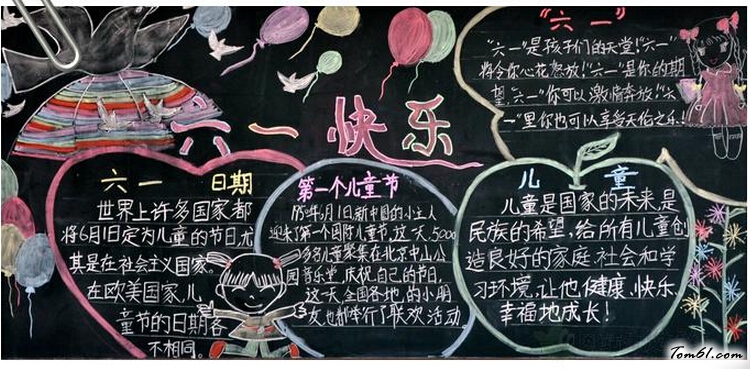 “六一”
“六一”是孩子们的天堂!“六一”
将令你心花怒放!“六一”是你的期
望,“六一”你可以激情奔放!“六
一”里你也可以享受天伦之乐!
六一快乐
六一 日期
世界上许多国家都
将6月1日定为儿童的节日,尤
其是在社会主义国家。
在欧美国家,儿
童节的日期各
不相同。
第一个儿童节
年6月1日新中国的小主人
迎来了第一个国际儿童节,这一天,5000
多名儿童聚集在北京中山公
园音乐堂,庆祝自己的节日,
这一天,全国各地的小朋
友也都举行了联欢活动
儿童
儿童是国家的未来,是
民族的希望,给所有儿童创
造良好的家庭、社会和学
习环境,让他 健康、快乐、
幸福地成长!
Tom61.com